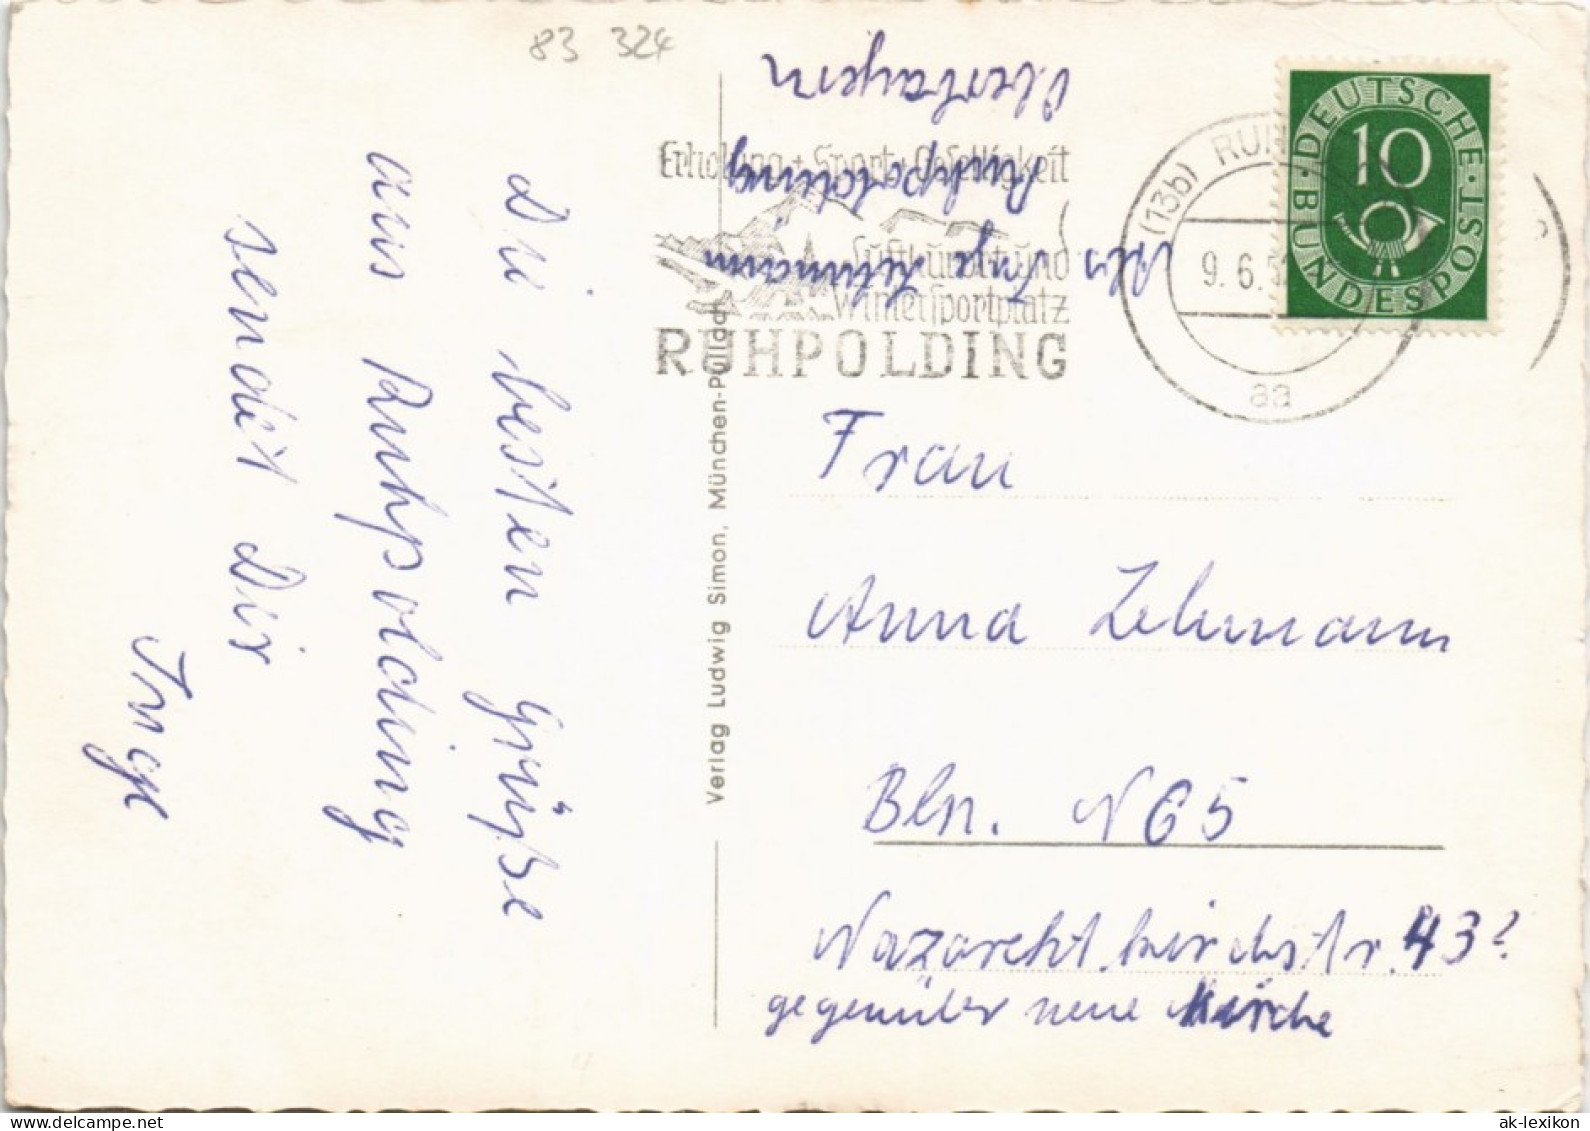 83 324
Die besten Grüße
aus Ruhpolding
sendet Dir
Inge
Verlag Ludwig Simon, München-Pullach
Abs Inge Lehmann
Ruhpolding
Oberbayern
Erholung + Sport + Geselligkeit
Luftkurort und
Wintersportplatz
RUHPOLDING
(13b) RUH
9.6.5
aa
DEUTSCHE · BUNDESPOST ·
10
Frau
Anna Lehmann
Bln. N 65
Nazarethkirchstr. 43?
gegenüber neue Kirche
ak-lexikon